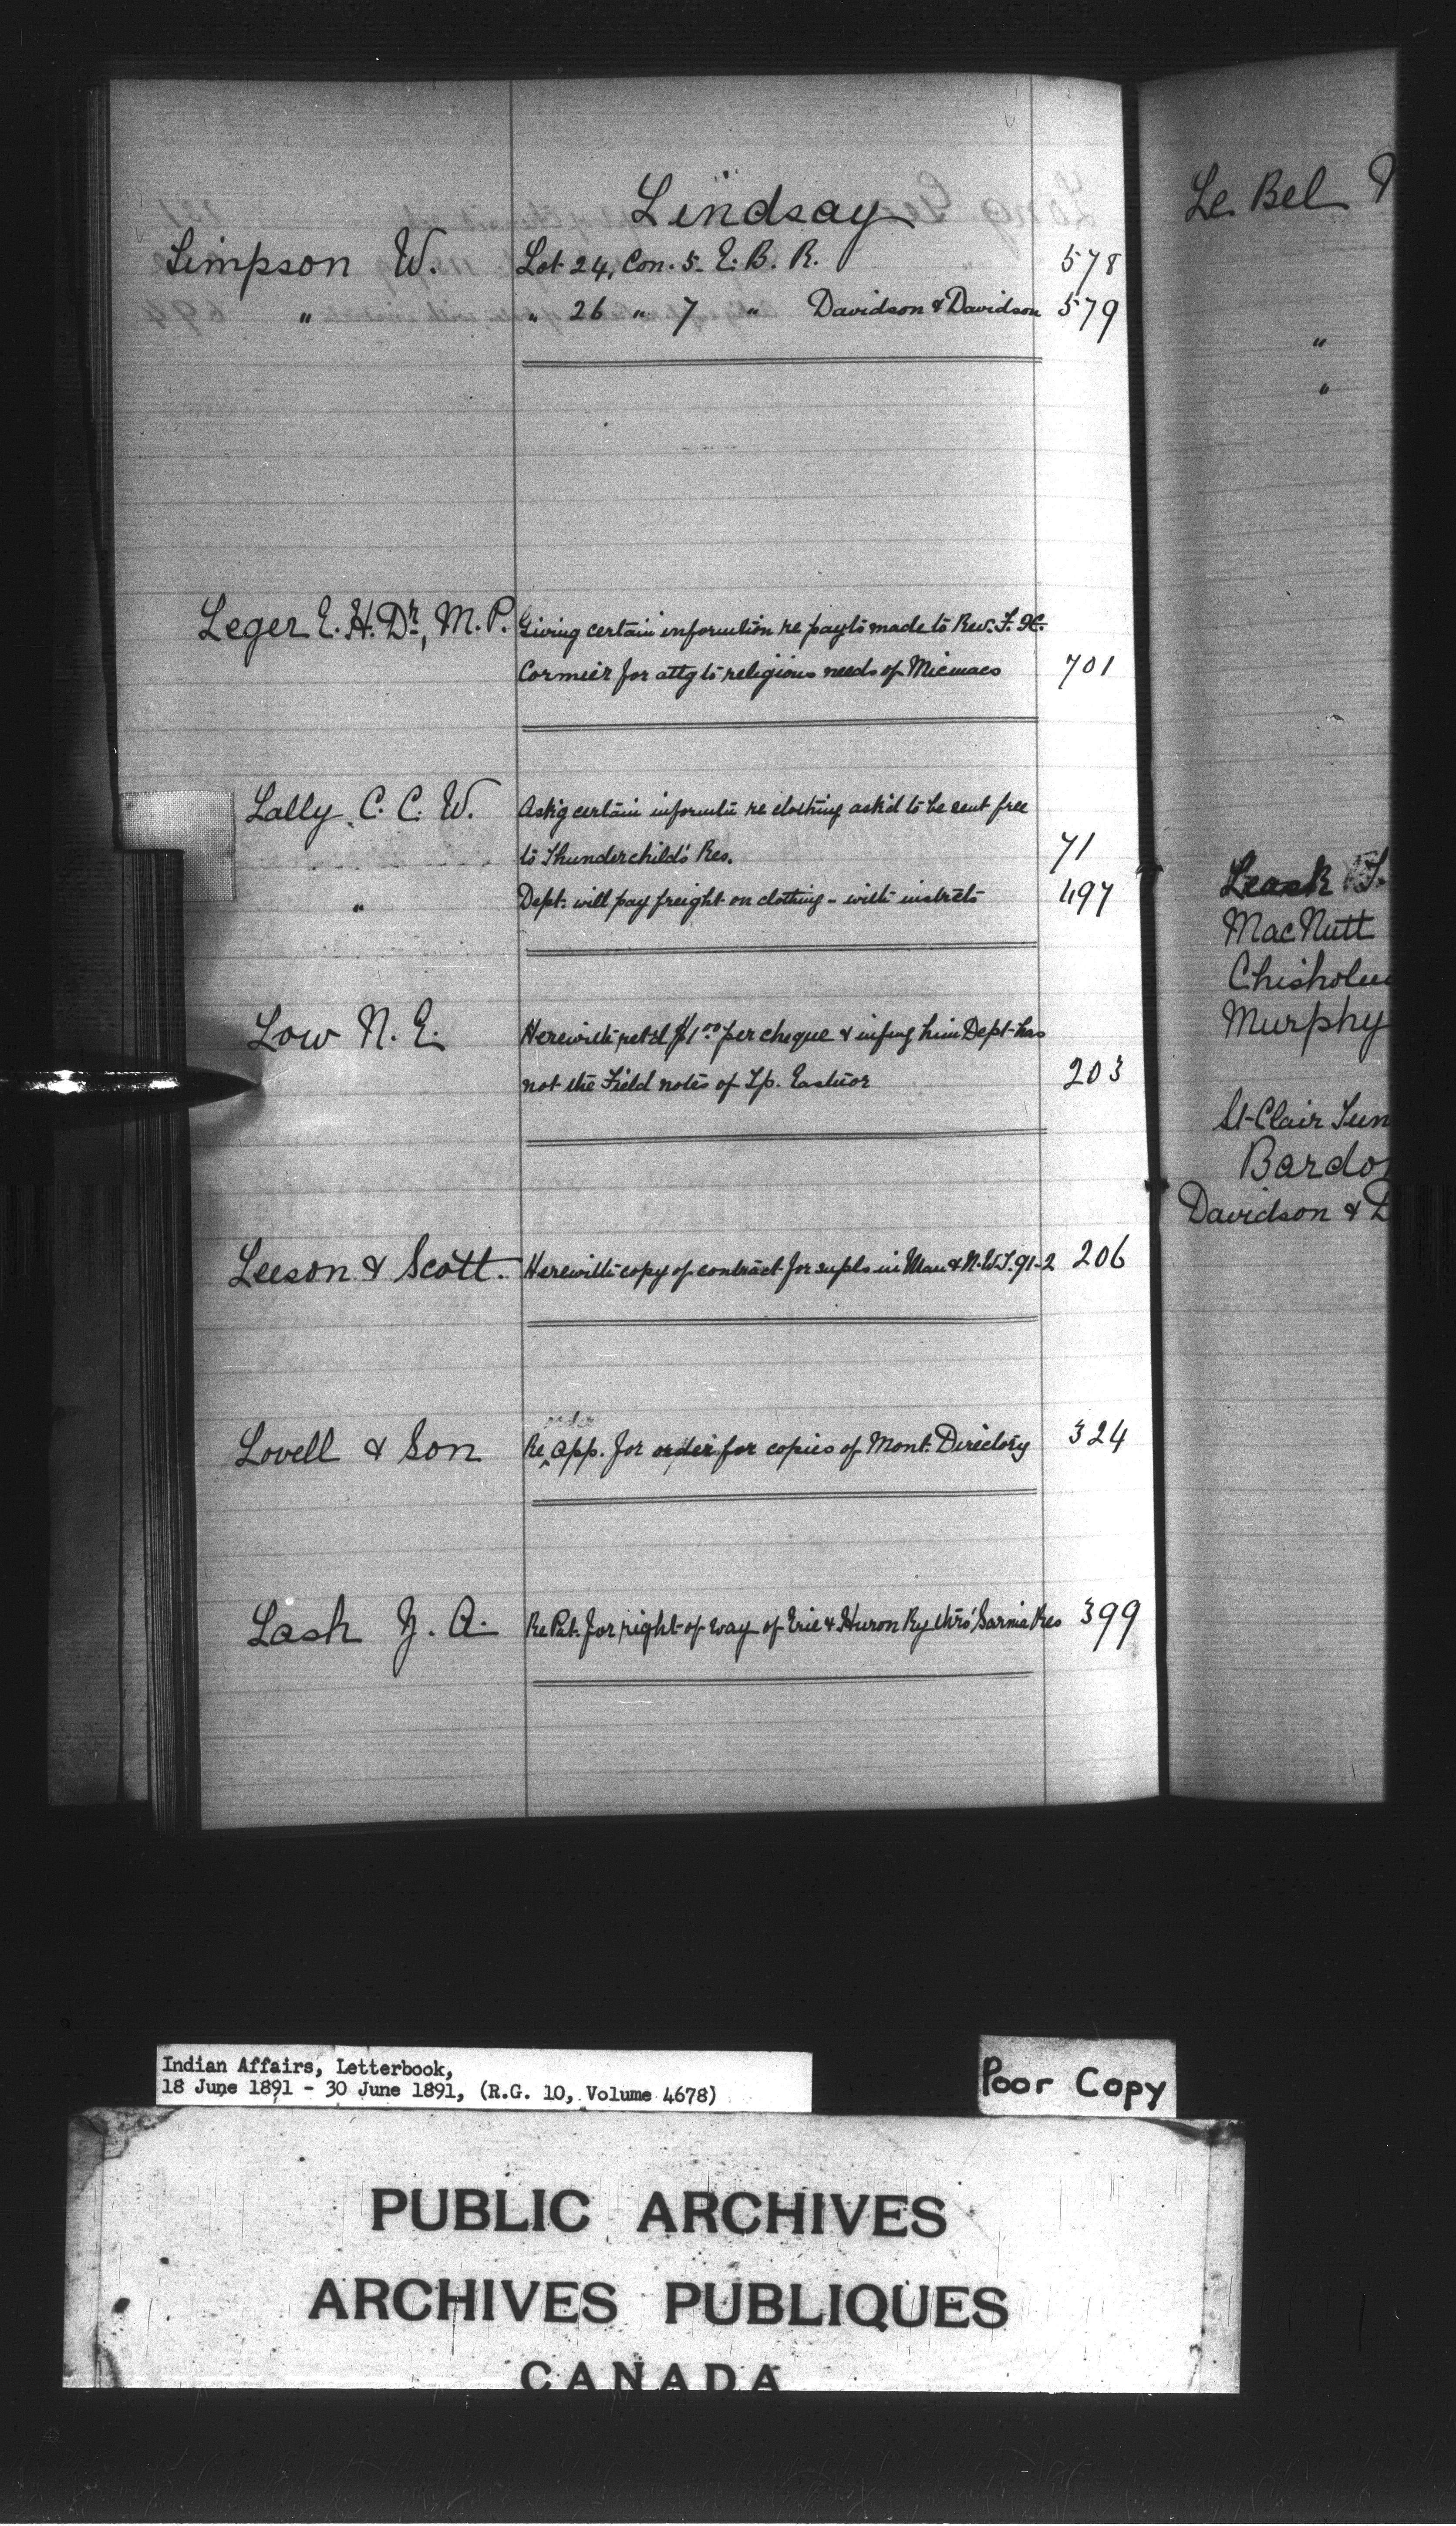 Lindsay
Simpson W. Lot 24, Con. 5. E. B. R. 578
" " 26 " 7 " Davidson & Davidson 579
Leger E. H. Dr., M. P. Giving certain information re payts made to Rev. F. X.
Cormier for attg to religious needs of Micmacs 701
Lally C. C. W. Ask'g certain informatn re clothing ask'd to be sent free
to Thunderchild's Res. 71
" Dept. will pay freight on clothing - with instrcts 497
Low N. E. Herewith ret'd $1.00 per cheque & infmg him Dept. has
not the Field notes of Tp. Eastnor 203
Leeson & Scott. Herewith copy of contract for supls in Man & N.W.T. 91-2 206
order
Lovell & Son Re app. for order for copies of Mont. Directory 324
Lash Z. A. Re Pat. for right of way of Erie & Huron Ry thro' Sarnia Res 399
Le Bel
"
"
Leask T.
MacNutt
Chisholm
Murphy
St-Clair Tun
Bardo
Davidson & D
Indian Affairs, Letterbook,
18 June 1891 - 30 June 1891, (R.G. 10, Volume 4678)
Poor Copy
PUBLIC ARCHIVES
ARCHIVES PUBLIQUES
CANADA